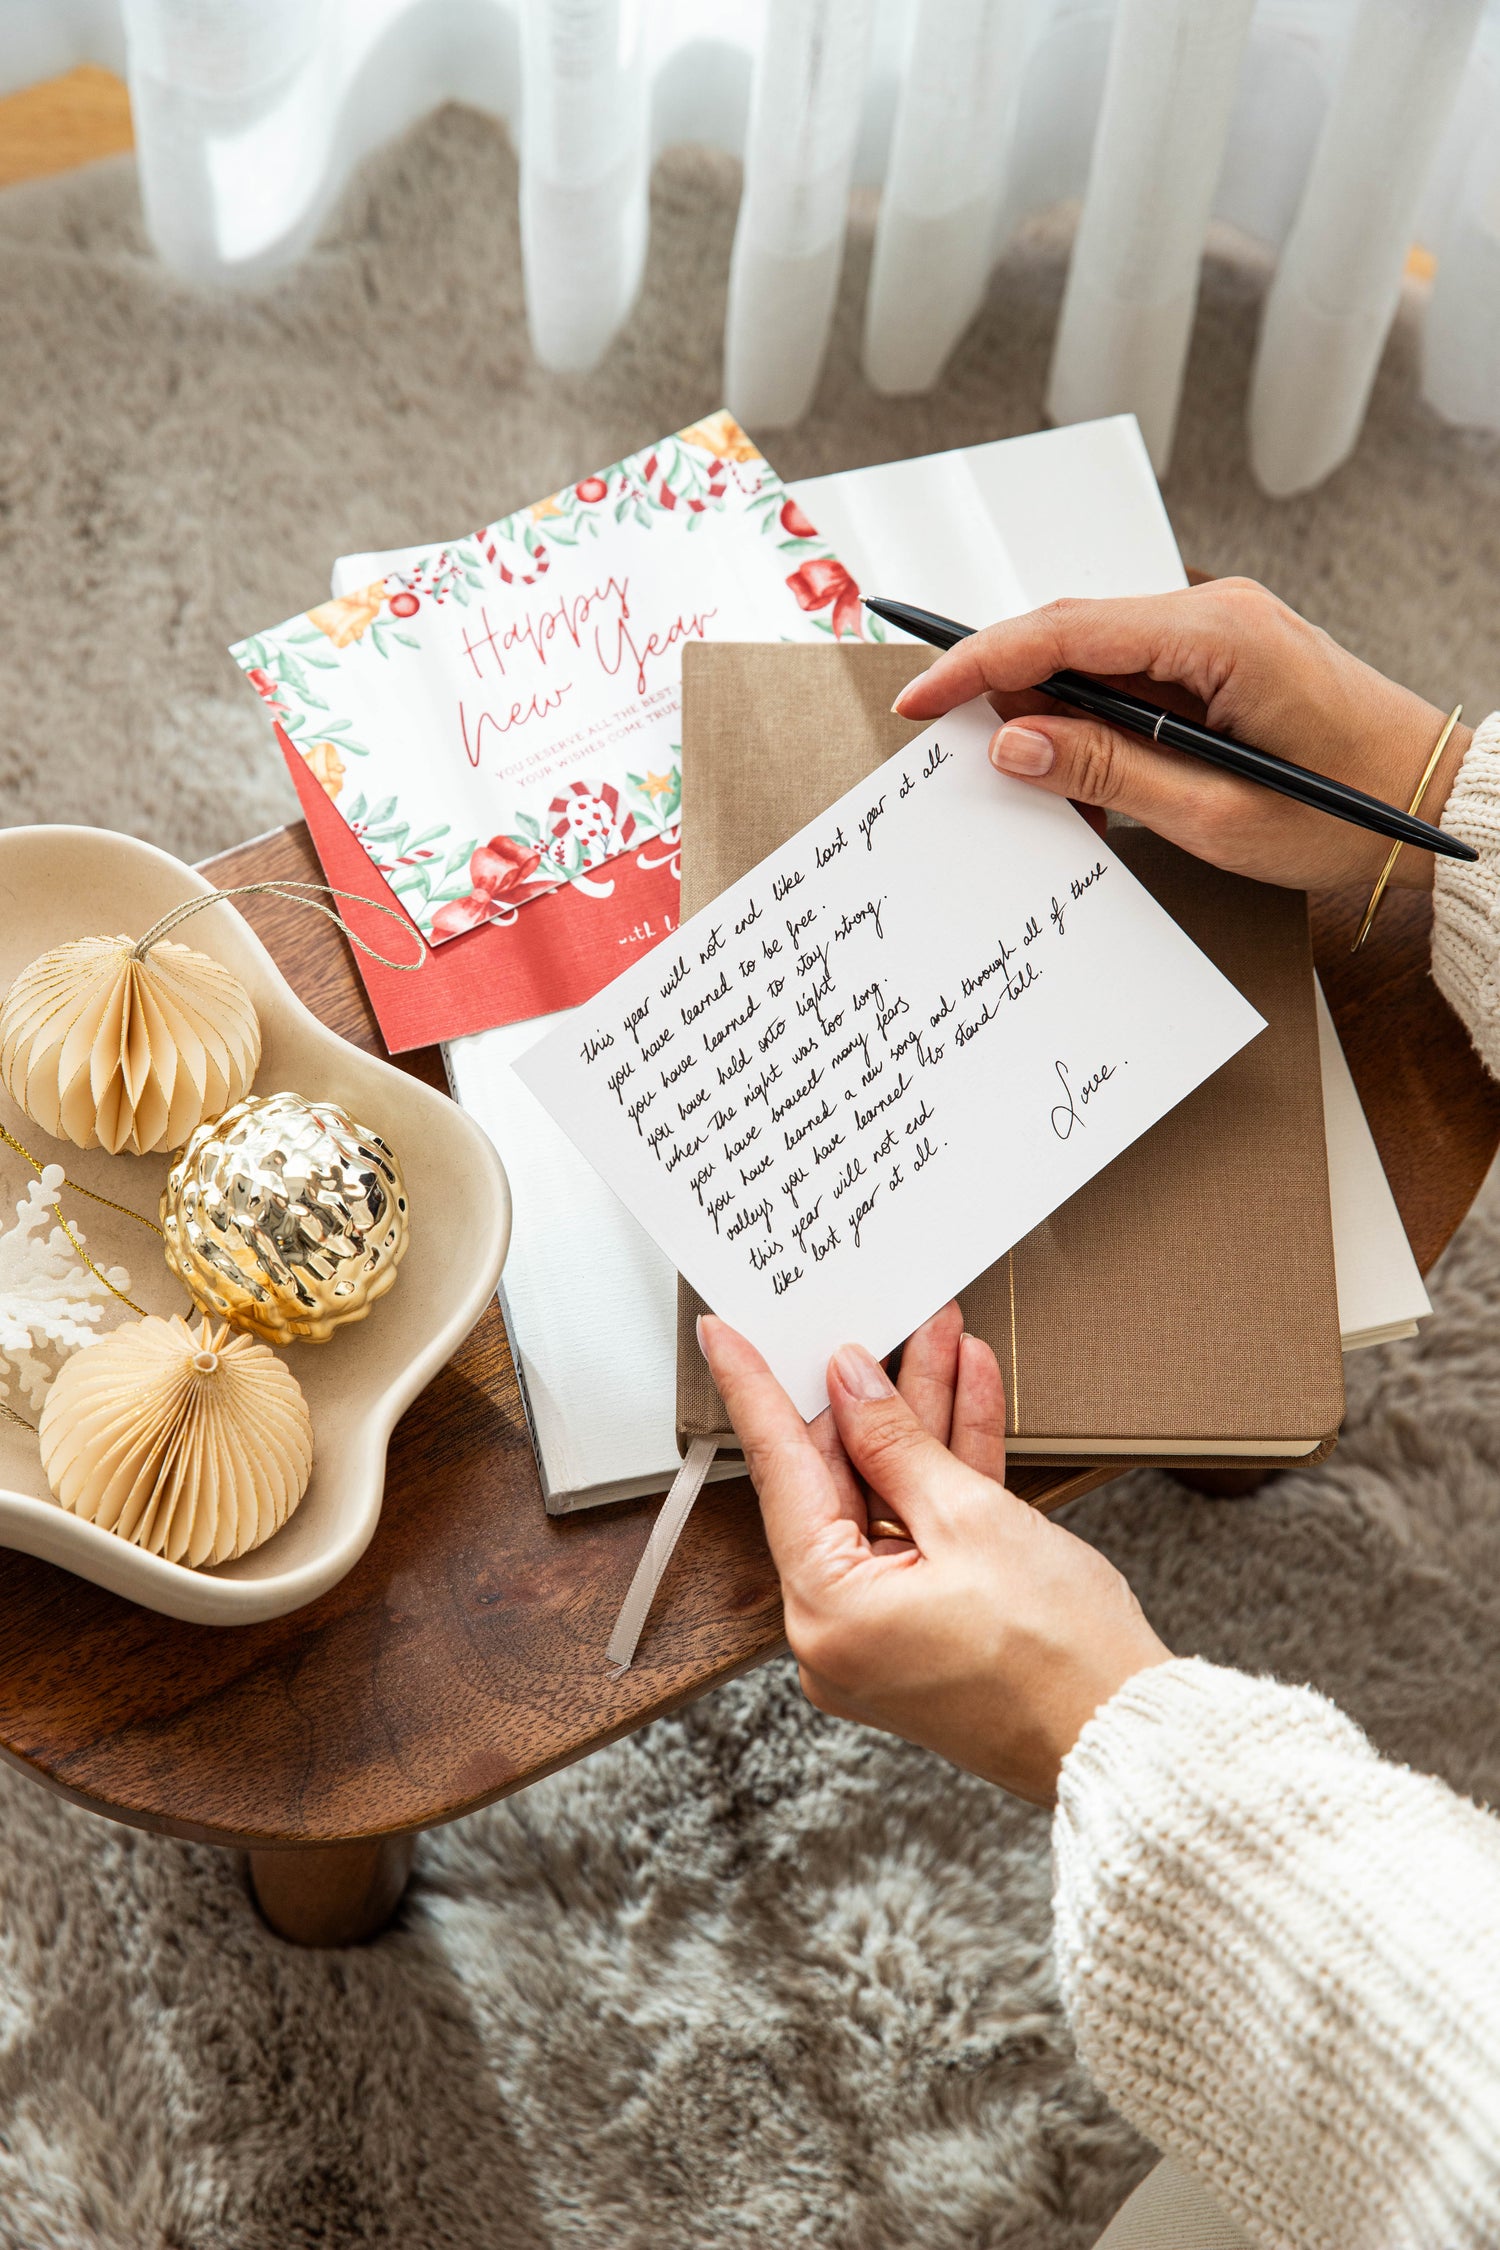 Happy
New Year
YOU DESERVE ALL THE BEST.
YOUR WISHES COME TRUE.
with
this year will not end like last year at all.
you have learned to be free.
you have learned to stay strong.
you have held onto light
when the night was too long.
you have braved many fears
you have learned a new song and through all of these
valleys you have learned to stand tall.
this year will not end
like last year at all.
Love.